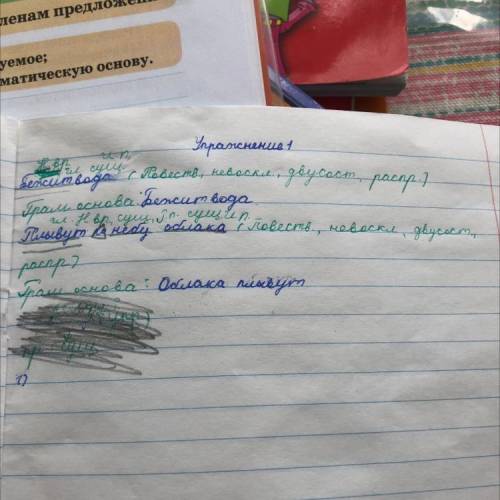 ленам предложен
уемое;
матическую основу.
Упражнение 1
Н.вр. и.п.
гл. сущ.
Бежит вода (Повеств, невоскл, двусост, распр.)
Грам основа: Бежит вода.
гл. Н.вр. сущ. п. сущ и.п.
Плывут по небу облака (Повеств, невоскл, двусост,
распр)
Грам основа: Облака плывут